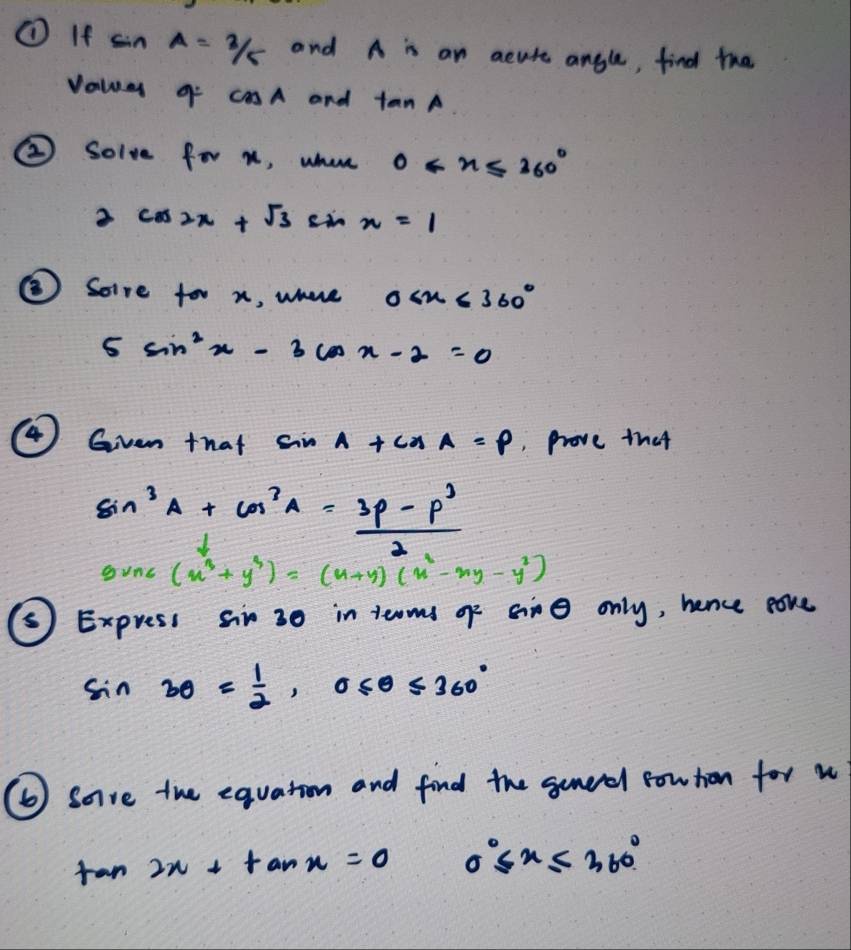 ① If sin A = 3/5 and A is an acute angle, find the
Values of cos A and tan A.
② Solve for x, where 0 ≤ x ≤ 360°
2 cos 2x + √3 sin x = 1
③ Solve for x, where 0 ≤ x ≤ 360°
5 sin² x - 3 cos x - 2 = 0
④ Given that sin A + cos A = P, prove that
sin³ A + cos³ A = 3p - p³ / 2
(x³ + y³) = (x+y) (x² - xy - y²)
⑤ Express sin 3θ in terms of sin θ only, hence solve
Sin 3θ = 1/2, 0 ≤ θ ≤ 360°
⑥ Solve the equation and find the general solution for x:
tan 2x + tan x = 0 0° ≤ x ≤ 360°